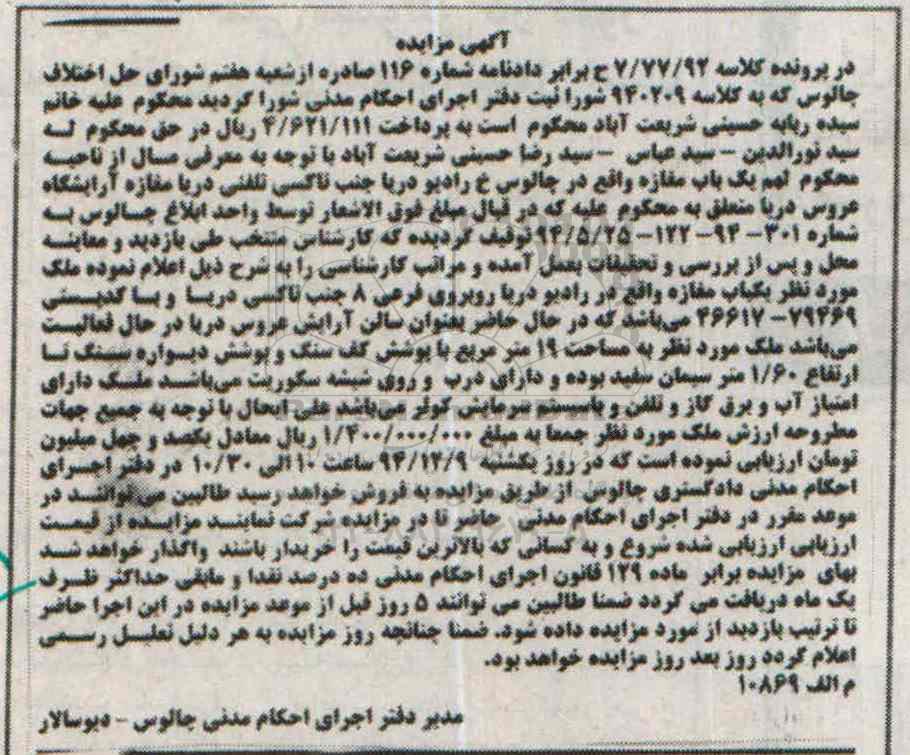 آگهی مزایده
در پرونده کلاسه ۷/۷۷/۹۲ ح برابر دادنامه شماره ۱۱۶ صادره از شعبه هفتم شورای حل اختلاف
چالوس که به کلاسه ۹۴۰۲۰۹ شورا ثبت دفتر اجرای احکام مدنی شورا گردید محکوم علیه خانم
سیده ربابه حسینی شریعت آباد محکوم است به پرداخت ۴/۶۲۱/۱۱۱ ریال در حق محکوم لـه
سید نورالدین – سید عباس – سید رضا حسینی شریعت آباد با توجه به معرفی مسال از ناحیـه
محکوم لهم یک باب مغازه واقع در چالوس خ رادیو دریا جنب تاکسی تلفنی دریا مغازه آرایشگاه
عروس دریا متعلق به محکوم علیه که در قبال مبلغ فوق الاشعار توسط واحد ابلاغ چـالوس بـه
شماره ۳۰۱– ۹۴– ۱۲۲– ۹۴/۵/۲۵ توقیف گردیده که کارشناس منتخب طی بازدید و معاینـه
محل و پس از بررسی و تحقیقات بعمل آمده و مراتب کارشناسی را به شرح ذیل اعلام نموده ملک
مورد نظر یکباب مغازه واقع در رادیو دریا روبروی فرعی ۸ جنب تاکسی دریـا و بـا کدپـستی
۷۹۴۶۹–۴۶۶۱۷ می‌باشد که در حال حاضر بعنوان سالن آرایش عروس دریا در حال فعالیـت
می‌باشد ملک مورد نظر به مساحت ۱۹ متر مربع با پوشش کف سنگ و پوشش دیـواره سـنگ تـا
ارتفاع ۱/۶۰ متر سیمان سفید بوده و دارای درب و روی شیشه سکوریت می‌باشـد ملـک دارای
امتیاز آب و برق گاز و تلفن و باسیستم سرمایش کولر می‌باشد علی ایحال با توجه به جمیع جهات
مطروحه ارزش ملک مورد نظر جمعا به مبلغ ۱/۴۰۰/۰۰۰/۰۰۰ ریال معادل یکصد و چهل میلیون
تومان ارزیابی نموده است که در روز یکشنبه ۹۴/۱۲/۹ ساعت ۱۰ الی ۱۰/۳۰ در دفتر اجـرای
احکام مدنی دادگستری چالوس از طریق مزایده به فروش خواهد رسید طالبین می تواننـد در
موعد مقرر در دفتر اجرای احکام مدنی حاضر تا در مزایده شرکت نماینـد مزایـده از قیمـت
ارزیابی ارزیابی شده شروع و به کسانی که بالاترین قیمت را خریدار باشند واگذار خواهد شـد
بهای مزایده برابر ماده ۱۲۹ قانون اجرای احکام مدنی ده درصد نقدا و مابقی حداکثر ظـرف
یک ماه دریافت می گردد ضمنا طالبین می توانند ۵ روز قبل از موعد مزایده در این اجرا حاضر
تا ترتیب بازدید از مورد مزایده داده شود. ضمنا چنانچه روز مزایده به هر دلیل تعطیـل رسـمی
اعلام گردد روز بعد روز مزایده خواهد بود.
م الف ۱۰۸۶۹
مدیر دفتر اجرای احکام مدنی چالوس – دیوسالار